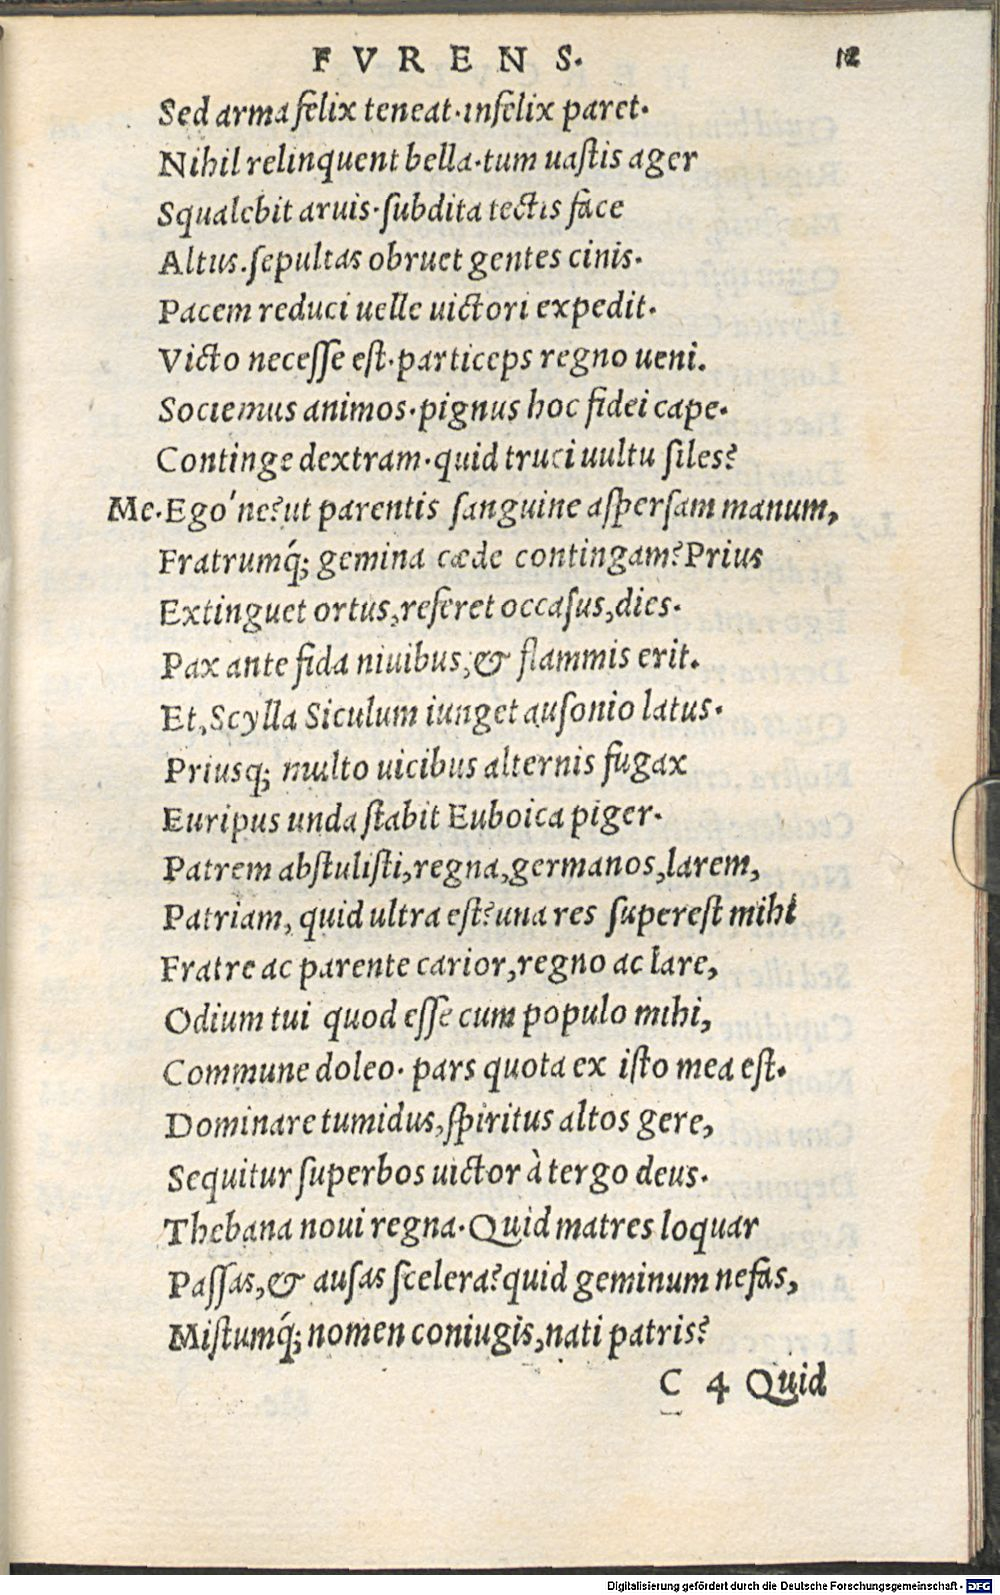 FVRENS. 12
Sed arma felix teneat·infelix paret·
Nihil relinquent bella·tum uastis ager
Squalebit aruis·subdita tectis face
Altus.sepultas obruet gentes cinis·
Pacem reduci uelle uictori expedit·
Victo necesse est·particeps regno ueni.
Sociemus animos·pignus hoc fidei cape·
Continge dextram·quid truci uultu siles?
Me·Ego'ne?ut parentis sanguine aspersam manum,
Fratrumq́; gemina cæde contingam?Prius
Extinguet ortus,referet occasus,dies·
Pax ante fida niuibus,& flammis erit.
Et,Scylla Siculum iunget ausonio latus·
Priusq; multo uicibus alternis fugax
Euripus unda stabit Euboica piger·
Patrem abstulisti,regna,germanos,larem,
Patriam, quid ultra est?una res superest mihi
Fratre ac parente carior,regno ac lare,
Odium tui quod esse cum populo mihi,
Commune doleo· pars quota ex isto mea est·
Dominare tumidus,spiritus altos gere,
Sequitur superbos uictor à tergo deus·
Thebana noui regna·Quid matres loquar
Passas,& ausas scelera?quid geminum nefas,
Mistumq́; nomen coniugis,nati patris?
C 4 Quid
Digitalisierung gefördert durch die Deutsche Forschungsgemeinschaft · DFG